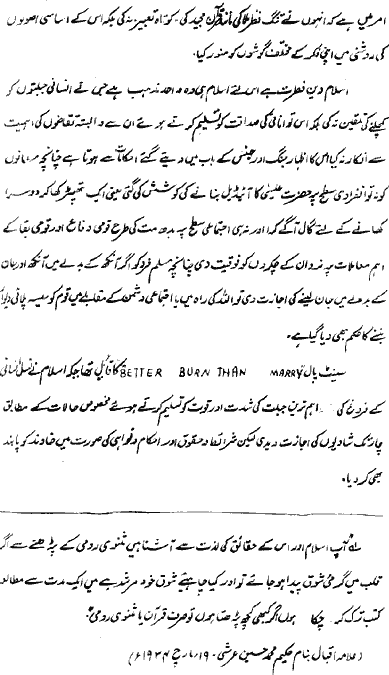 امر میں ہے کہ انہوں نے تنگ نظر ملا کی مانند قرآن مجید کی کوتاہ تعبیر نہ کی بلکہ اس کے اساسی اصولوں
کی روشنی میں اپنی فکر کے مختلف گوشوں کو منور کیا۔
اسلام دین فطرت ہے اس لئے اسلام ہی وہ واحد مذہب ہے جس نے انسانی جبلتوں کو
کچلنے کی تلقین نہ کی بلکہ اس توانائی کی صداقت کو تسلیم کرتے ہوئے ان سے وابستہ تقاضوں کی اہمیت
سے انکار نہ کیا اس کا اظہار جنگ اور جنس کے باب میں دیئے گئے احکامات سے ہوتا ہے چنانچہ مسلمانوں
کو نہ تو انفرادی سطح پر حضرت عیسیٰ کا آئیڈیل بنانے کی کوشش کی گئی یعنی ایک تھپڑ کھا کر دوسرا
کھانے کے لئے گال آگے کر دو اور نہ ہی اجتماعی سطح پر بدھ مت کی طرح قومی دفاع اور قومی بقا کے
اہم معاملات پر نروان کے چکروں کو فوقیت دی چنانچہ مسلم فرد کو اگر آنکھ کے بدلے میں آنکھ اور جان
کے بدلے میں جان لینے کی اجازت دی تو اللہ کی راہ میں یا اجتماعی دشمن کے مقابلے میں قوم کو سیسہ پلائی دیوار
بننے کا حکم بھی دیا گیا ہے۔
سینٹ پال BETTER BURN THAN MARRY کا قائل تھا جبکہ اسلام نے نسل انسانی
کے فروغ کی اہم ترین جبلت کی شدت اور قوت کو تسلیم کرتے ہوئے مخصوص حالات کے مطابق
چار تک شادیوں کی اجازت دیدی لیکن شرائط و حقوق اور احکام و نواہی کی صورت میں خاوند کو پابند
بھی کر دیا۔
لہ "آپ اسلام اور اس کے حقائق کی لذت سے آشنا ہیں مثنوی رومی کے پڑھنے سے اگر
قلب میں گرمئ شوق پیدا ہو جائے تو اور کیا چاہیئے شوق خود مرشد ہے میں ایک مدت سے مطالعہ
کتب ترک کر چکا ہوں اگر کبھی کچھ پڑھتا ہوں تو صرف قرآن یا مثنوی رومی"
(علامہ اقبال بنام حکیم محمد حسین عرشی۔ ۱۹ مارچ ۱۹۳۴ء)